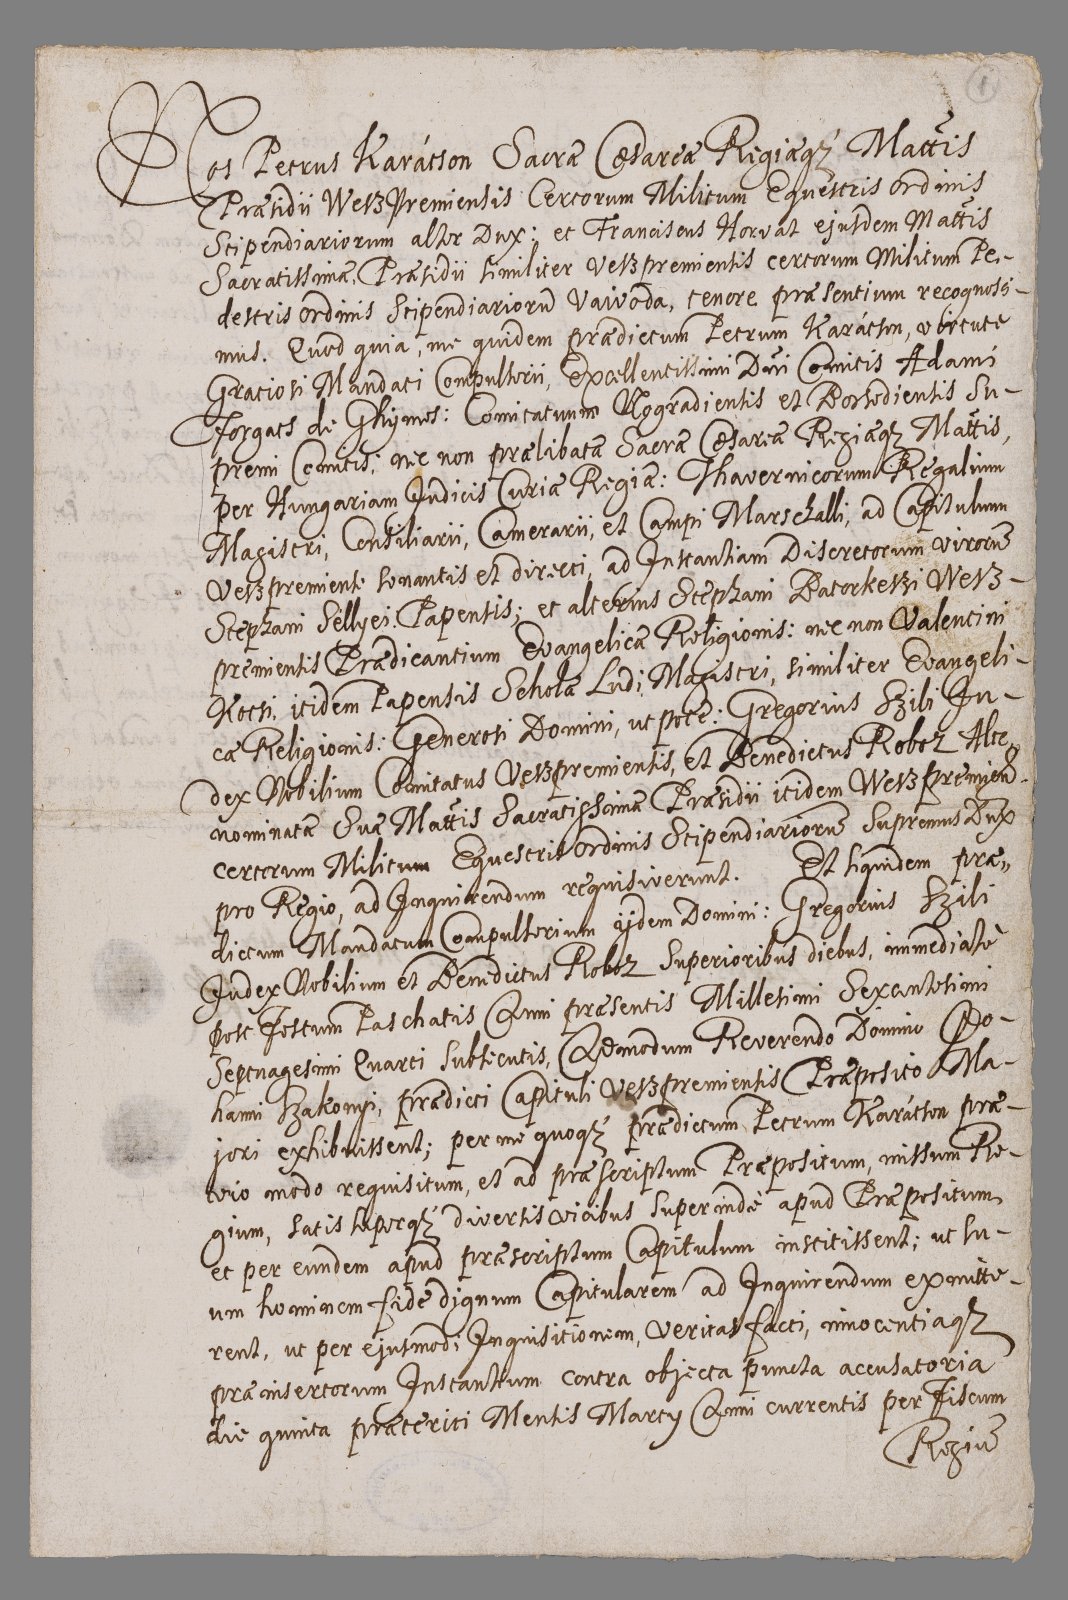 1
Nos Petrus Karácson Sacræ Cæsareæ Regiæq₃ Mattis
Præsidii Weszpremiensis Certorum Militum Equestris ordinis
Stipendiariorum alter Dux; et Franciscus Horvát ejusdem Mattis
Sacratissimæ, Præsidii similiter Veszpremiensis certorum Militum Pe-
destris ordinis Stipendiariorū Vaivoda, tenore præsentium recognosci-
mus. Quod quia, me quidem prædictum Petrum Karácson, virtute
Gratiosi Mandati Compulsorii, Excellentissimi Dni Comitis Adami
Forgats de Ghymes: Comitatuum Neogradiensis et Borsodiensis Su-
premi Comitis; nec non prælibatæ Sacræ Cæsareæ Regiæq₃ Mattis,
per Hungariam Judicis Curiæ Regiæ: Thavernicorum Regalium
Magistri, Consiliarii, Camerarii, et Campi Marschalli, ad Capitulum
Veszpremiense sonantis et directi, ad Instantiam Discretorum virorū
Stephani Sellyei Papensis; et alterius Stephani Batorkeszi Wesz-
premiensis Prædicantium Evangelicæ Religionis: nec non Valentini
Kocsi, itidem Papensis Scholæ Ludi Magistri, similiter Evangeli-
cæ Religionis: Generosi Domini, ut pote: Gregorius Szili Ju-
dex Nobilium Comitatus Veszpremiensis, et Benedictus Roboz Alte
nominatæ Suæ Mattis Sacratissimæ Præsidii itidem Weszpremien.
certorum Militum Equestris ordinis Stipendiariorū Supremus Dux
pro Regio, ad Inquirendum requisiverunt. Et siquidem præ„
dictum Mandatum Compulsorium ijdem Domini: Gregorius Szili
Judex Nobilium et Benedictus Roboz Superioribus diebus, immediatè
post Festum Paschatis Anni præsentis Millesimi Sexcentesimi
Septuagesimi Quarti Subsentis, Admodum Reverendo Domino Jo-
hanni Szakonyi, prædicti Capituli Veszpremiensis Præposito Ma-
jori exhibuissent; per me quoq₃ prædictum Petrum Karácson præ-
vio modo requisitum, et ad præscriptum Præpositum, missum Re-
gium, satis superq₃ diversis vicibus superindè apud Præpositum
et per eundem apud præscriptum Capitulum institissent; ut su-
um hominem fide dignum Capitularem ad Inquirendum exmitte-
rent, ut per ejusmodi Inquisitionem, veritas facti, innocentiaq₃
præinsertorum Instantium contra objecta puncta accusatoria
die quinta præteriti Mensis Martij Anni currentis per Fiscum
Regiū